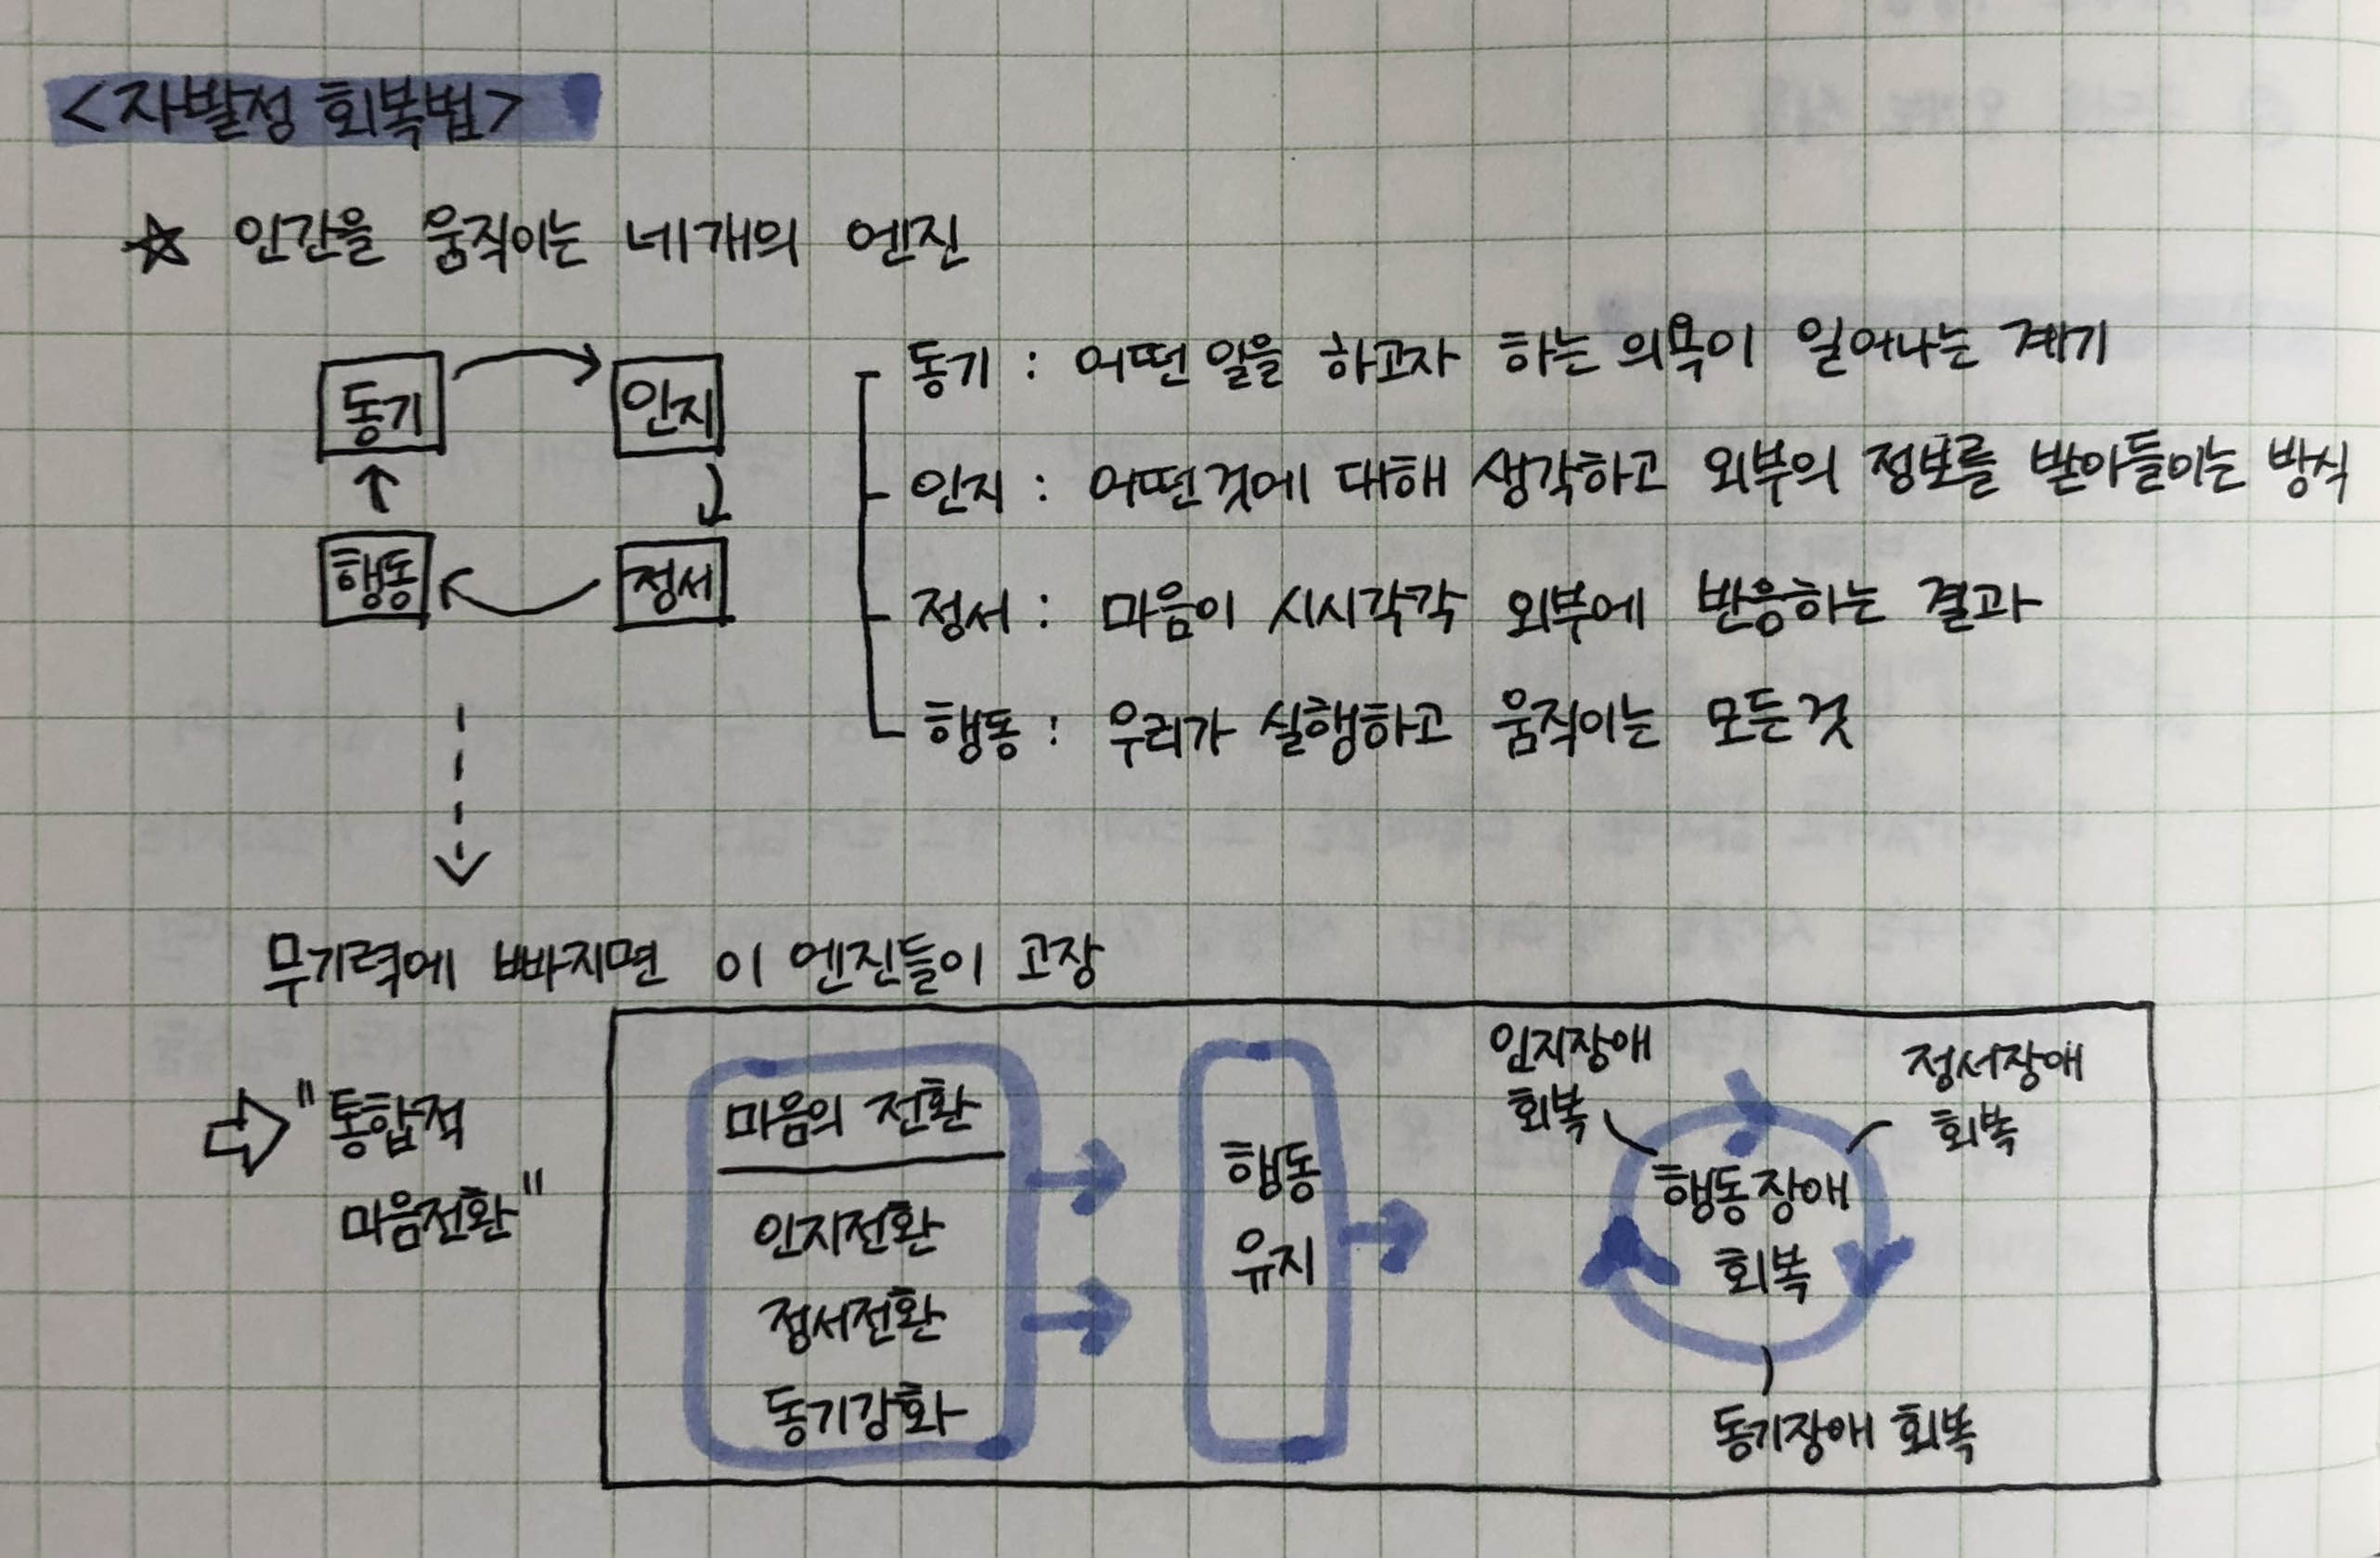 <자발성 회복법>
☆ 인간을 움직이는 네개의 엔진
동기
인지
행동
정서
동기 : 어떤 일을 하고자 하는 의욕이 일어나는 계기
인지 : 어떤것에 대해 생각하고 외부의 정보를 받아들이는 방식
정서 : 마음이 시시각각 외부에 반응하는 결과
행동 : 우리가 실행하고 움직이는 모든것
무기력에 빠지면 이 엔진들이 고장
⇨ "통합적
마음전환"
마음의 전환
인지전환
정서전환
동기강화
행동
유지
인지장애
회복
정서장애
회복
행동장애
회복
동기장애 회복